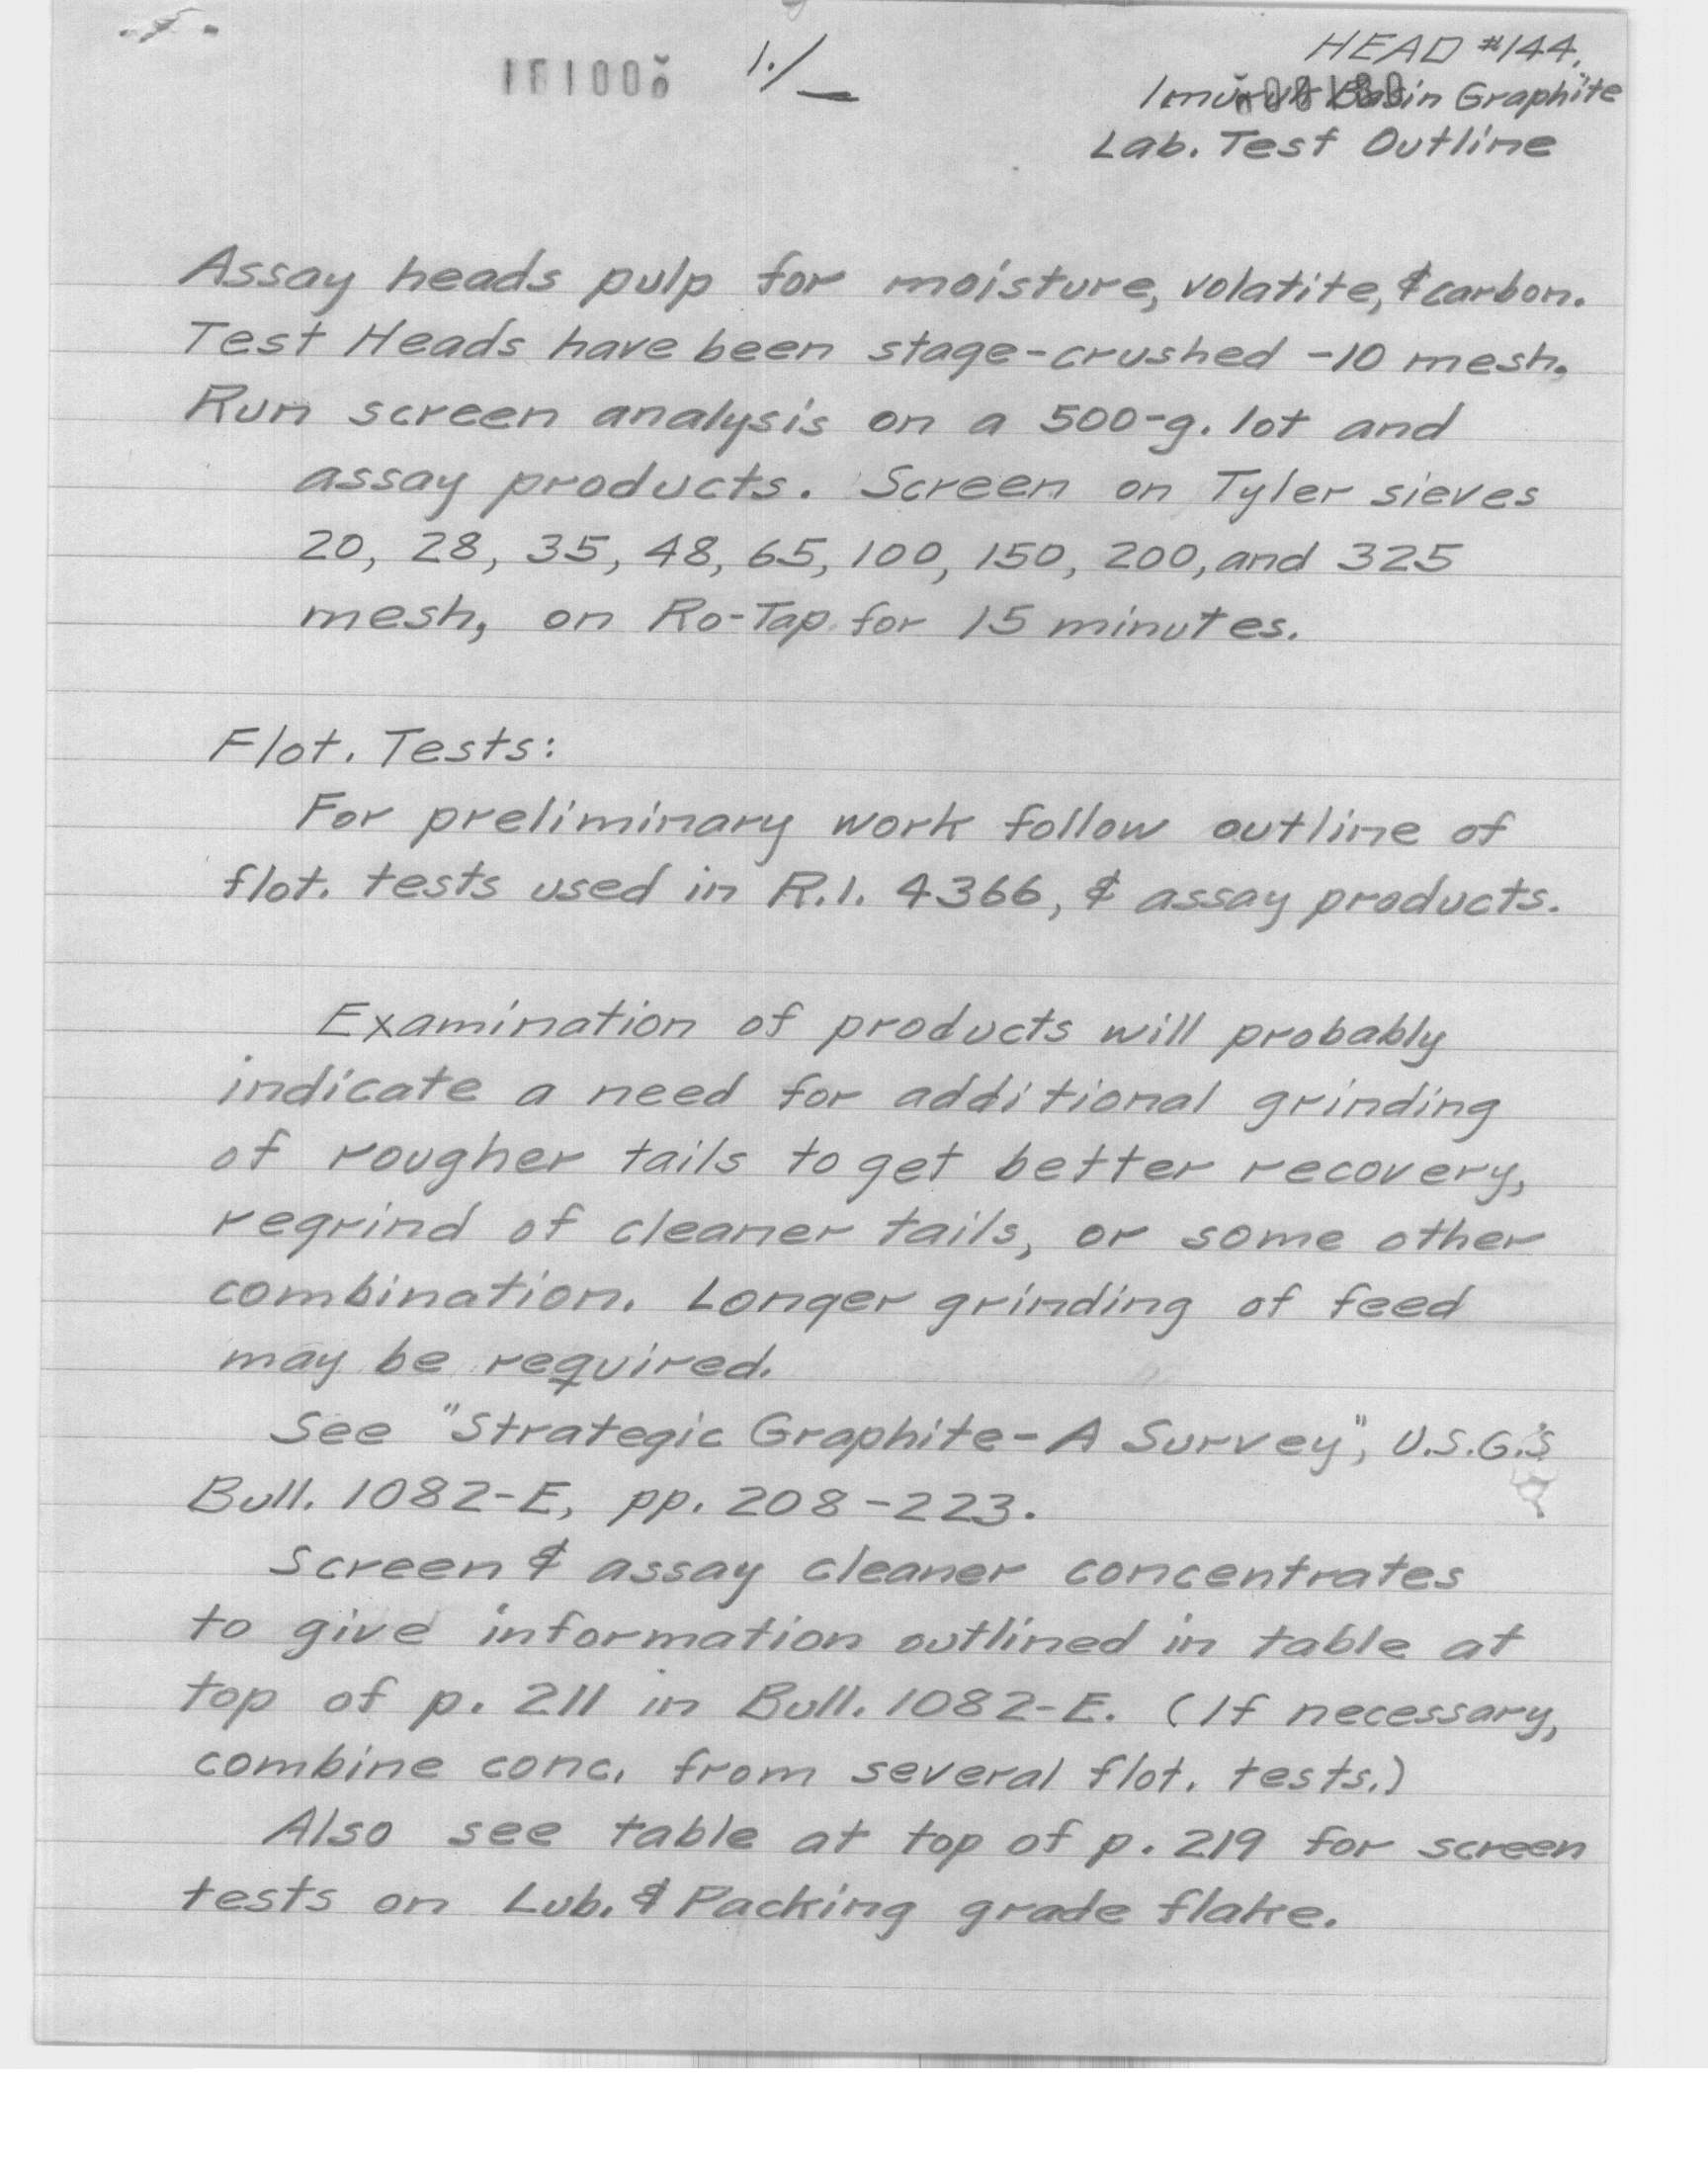 HEAD #144,
Basin Graphite
Lab. Test Outline
1./
Assay heads pulp for moisture, volatite, & carbon.
Test Heads have been stage-crushed -10 mesh.
Run screen analysis on a 500-g. lot and
assay products. Screen on Tyler sieves
20, 28, 35, 48, 65, 100, 150, 200, and 325
mesh, on Ro-Tap for 15 minutes.
Flot. Tests:
For preliminary work follow outline of
flot. tests used in R.I. 4366, & assay products.
Examination of products will probably
indicate a need for additional grinding
of rougher tails to get better recovery,
regrind of cleaner tails, or some other
combination. Longer grinding of feed
may be required.
See "Strategic Graphite - A Survey", U.S.G.S
Bull. 1082-E, pp. 208-223.
Screen & assay cleaner concentrates
to give information outlined in table at
top of p. 211 in Bull. 1082-E. (If necessary,
combine conc. from several flot. tests.)
Also see table at top of p. 219 for screen
tests on Lub. & Packing grade flake.